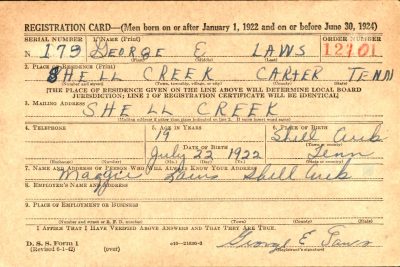 REGISTRATION CARD—(Men born on or after January 1, 1922 and on or before June 30, 1924)
SERIAL NUMBER 1. NAME (Print) ORDER NUMBER
N. 179 GEORGE E LAWS 12101
(First) (Middle) (Last)
2. PLACE OF RESIDENCE (Print)
SHELL CREEK CARTER TENN
(Town, township, village, or city) (County) (State)
[THE PLACE OF RESIDENCE GIVEN ON THE LINE ABOVE WILL DETERMINE LOCAL BOARD
JURISDICTION; LINE 2 OF REGISTRATION CERTIFICATE WILL BE IDENTICAL]
3. MAILING ADDRESS
SHELL CREEK
[Mailing address if other than place indicated on line 2. If same insert word same]
4. TELEPHONE 5. AGE IN YEARS 6. PLACE OF BIRTH
19 Shell Creek
DATE OF BIRTH (Town or county)
July 22 1922 Tenn
(Exchange) (Number) (Mo.) (Day) (Yr.) (State or country)
7. NAME AND ADDRESS OF PERSON WHO WILL ALWAYS KNOW YOUR ADDRESS
Maggie Laws Shell Creek
8. EMPLOYER'S NAME AND ADDRESS
9. PLACE OF EMPLOYMENT OR BUSINESS
(Number and street or R. F. D. number) (Town) (County) (State)
I AFFIRM THAT I HAVE VERIFIED ABOVE ANSWERS AND THAT THEY ARE TRUE.
D. S. S. FORM 1
(Revised 6-1-42) (over) George E Laws